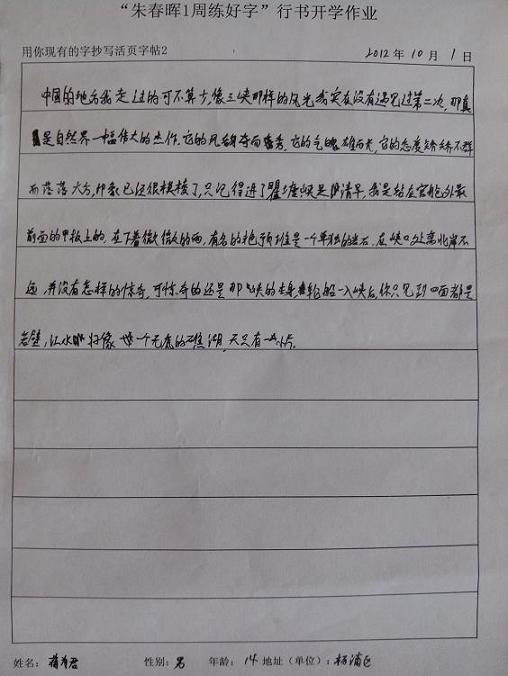 “朱春晖1周练好字”行书开学作业
用你现有的字抄写活页字帖2 2012年10月1日
中国的地方我走过的可不算少,像三峡那样的风光我实在没有遇见过第二次,那真
是自然界一幅伟大的杰作,它的风韵奇而秀,它的气魄雄而壮,它的态度矫矫不群
而落落大方,印象已还很模棱了,只记得进了瞿塘峡是的清早,我是站在官舱外最
前面的甲板上的,在下着微微的雨,有名的艳预堆是一个单独的岩石,在峡口处离北岸不
远,并没有怎样的惊奇,可惊奇的还是那峡的本身,轮船一入峡后,你只见到四面都是
岩壁,江水好像一个无底的礁湖,天只有一小片.
姓名: 性别:男 年龄:14 地址(单位):杨浦区